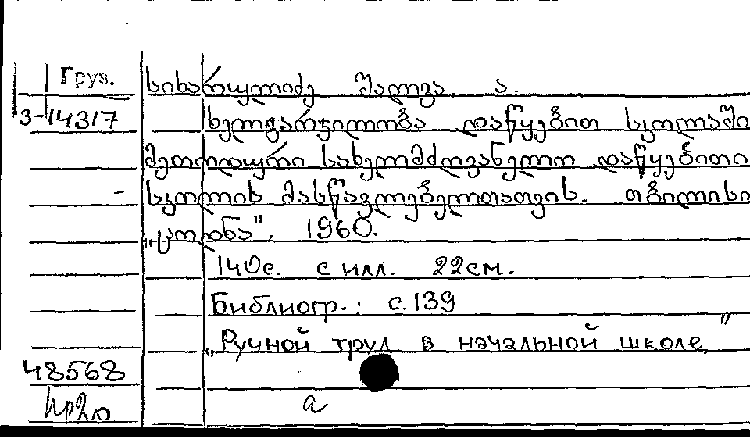 Груз.
სიხარულიძე შალვა ა.
3-14317
ხელგარჯილობა დაწყებით სკოლაში
მეთოდური სახელმძღვანელო დაწყებითი
სკოლის მასწავლებელთათვის. თბილისი
„ცოდნა". 1960.
140с. с илл. 22см.
Библиогр.: с.139
„Ручной труд в начальной школе"
48568
а